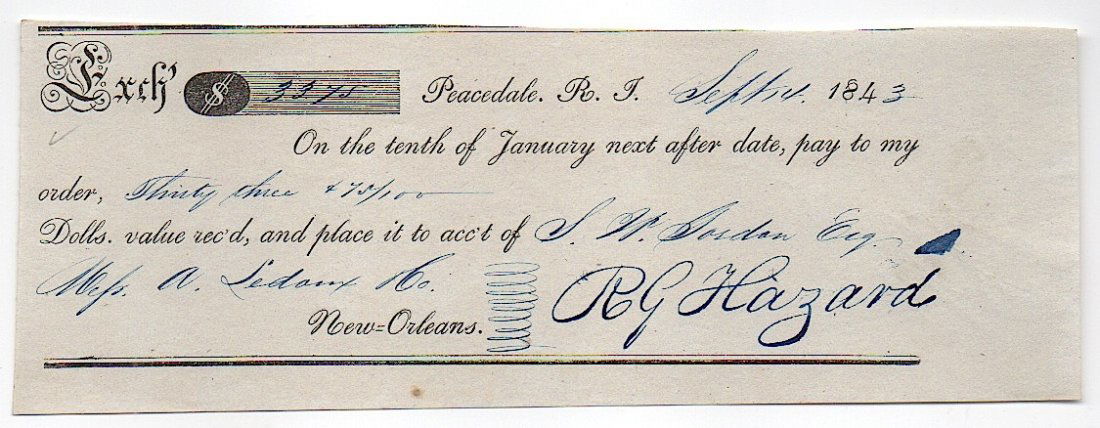 Exch' $ 33 75 Peacedale. R. I. Sept 14. 1843
On the tenth of January next after date, pay to my
order, Thirty three & 75/100
Dolls. value rec'd, and place it to acc't of S. W. Esq.
Mess. A. Ledoux & Co.
New=Orleans. R G Hazard